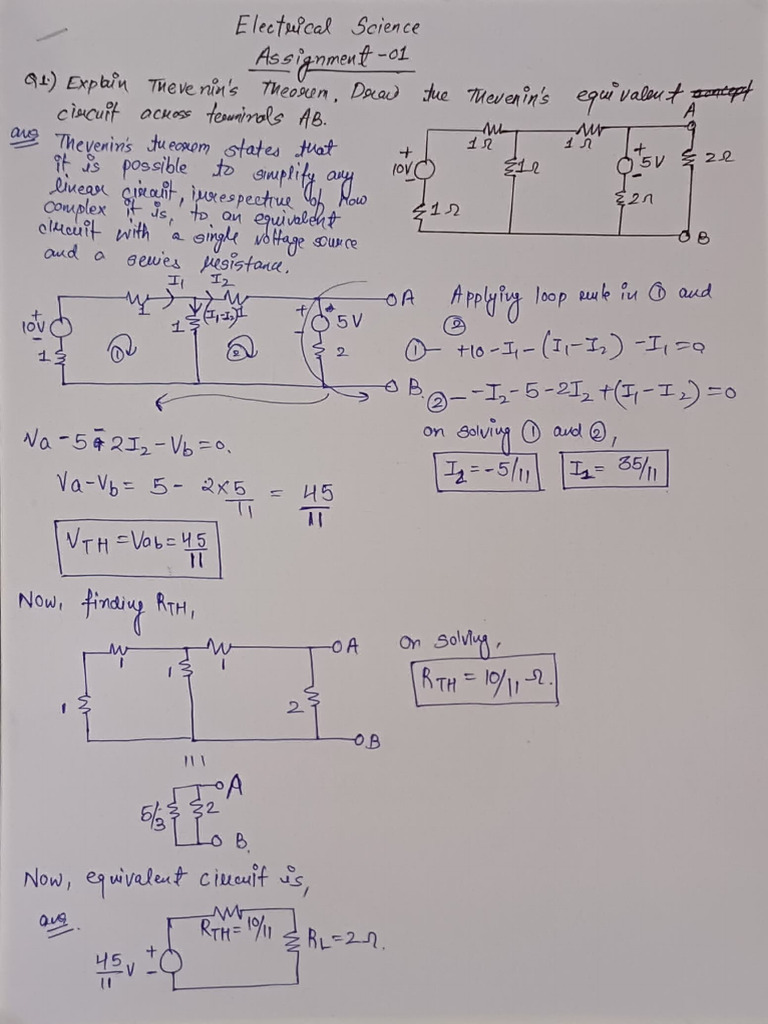 Electrical Science
Assignment-01
Q1.) Explain Thevenin's Theorem. Draw the Thevenin's equivalent concept
circuit across terminals AB.
ans Thevenin's theorem states that
it is possible to simplify any
linear circuit, irrespective of how
complex it is, to an equivalent
circuit with a single voltage source
and a series resistance.
A
1Ω 1Ω
+ 10V - 1Ω + 5V - 2Ω
1Ω 2Ω
B
I₁ I₂
1 1 A
+ 10V 1 (I₁-I₂) + 5V -
1 ① ② 2
B.
Applying loop rule in ① and
②
①- +10-I₁-(I₁-I₂) -I₁=0
②_ -I₂-5-2I₂+(I₁-I₂)=0
on solving ① and ②,
I₂=-5/11 I₁= 35/11
Va-5-2I₂-Vb=0.
Va-Vb= 5- 2×5/11 = 45/11
VTH=Vab=45/11
Now, finding RTH,
1 1 A
1 1 2
B
On solving,
RTH=10/11 Ω.
A
5/3 2
B.
Now, equivalent circuit is,
ans.
RTH=10/11
45/11 V + - RL=2Ω.